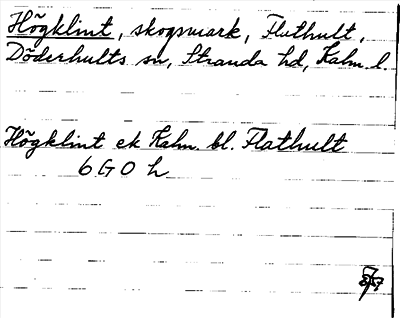 Högklint, skogsmark, Flathult,
Döderhults sn, Stranda hd, Kalm. l.
Högklint ek Kalm. bl. Flathult
6 G O h